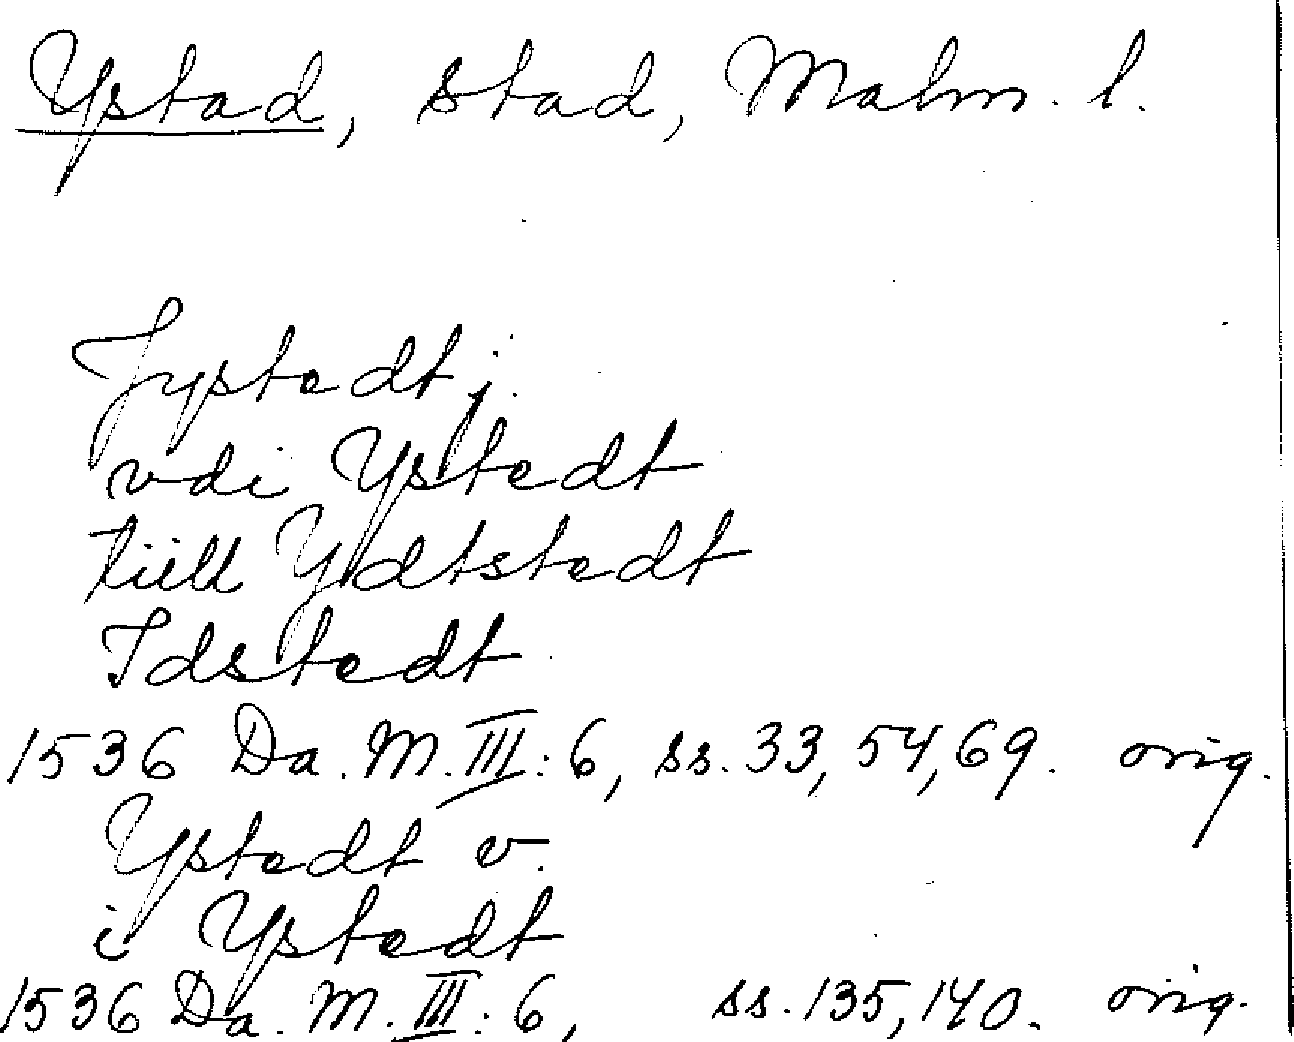 Ystad, stad, Malm. l.
Jystedt j.
vdi Ystedt
tiill Ydtstedt
Idstedt
1536 Da. M. III: 6, ss. 33, 54, 69. orig.
Ystedt v.
i Ystedt
1536 Da. M. III: 6, ss. 135, 140. orig.